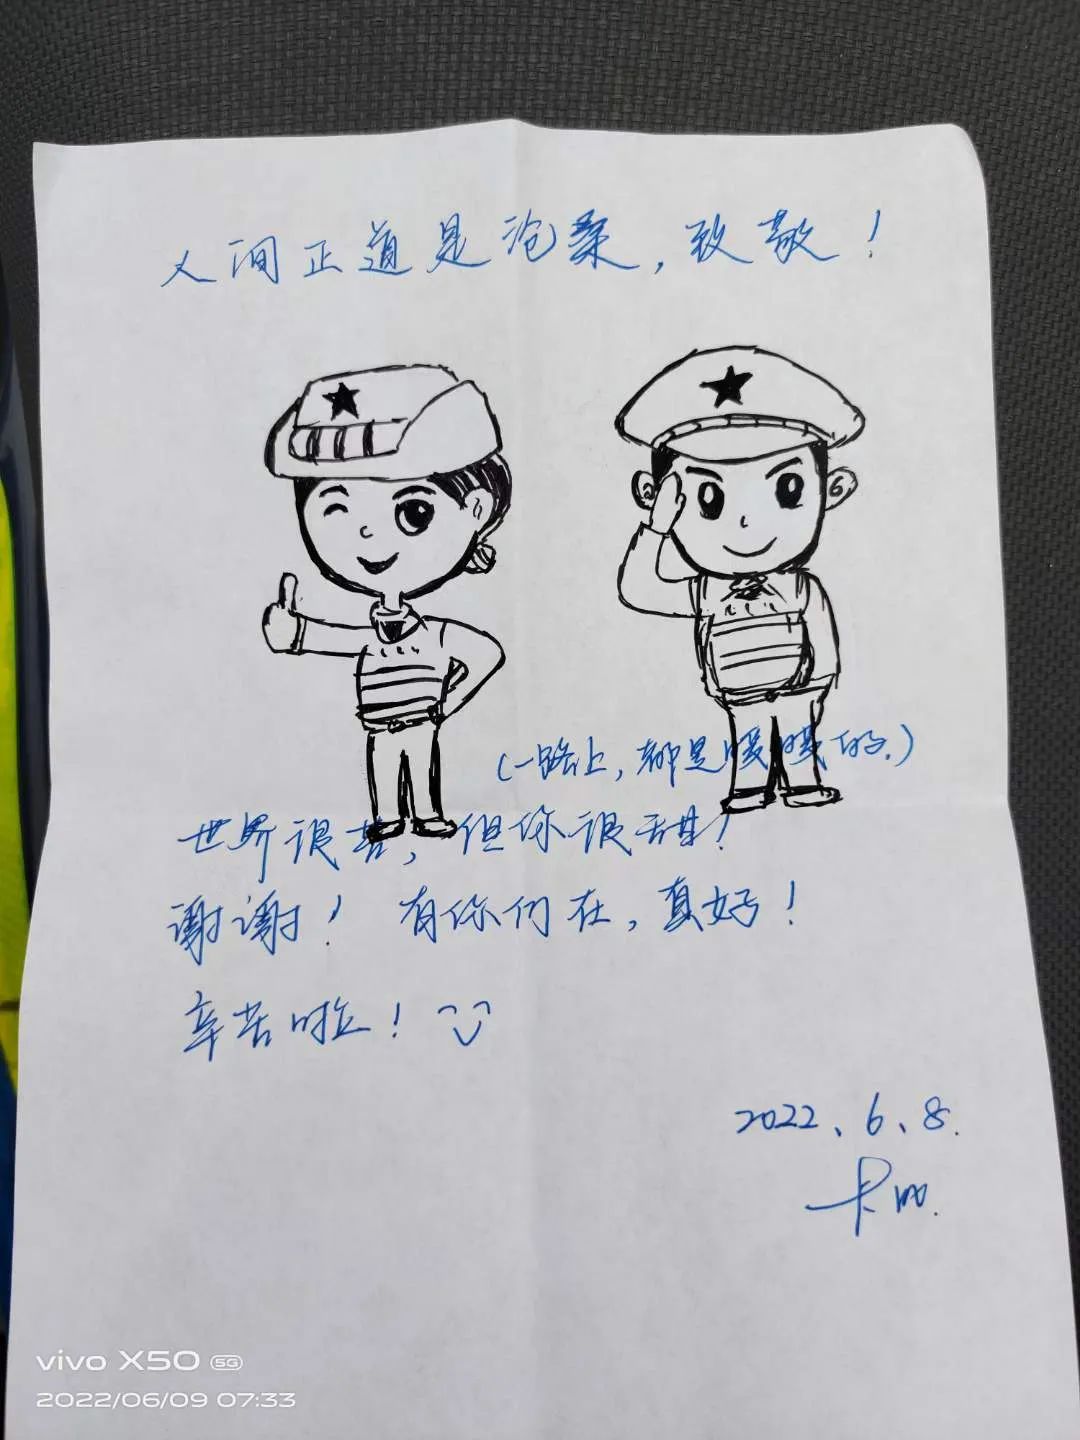 人间正道是沧桑，致敬！
（一路上，都是暖暖的.）
世界很苦，但你很甜！
谢谢！ 有你们在，真好！
辛苦啦！
2022、6、8.
vivo X50 5G
2022/06/09 07:33